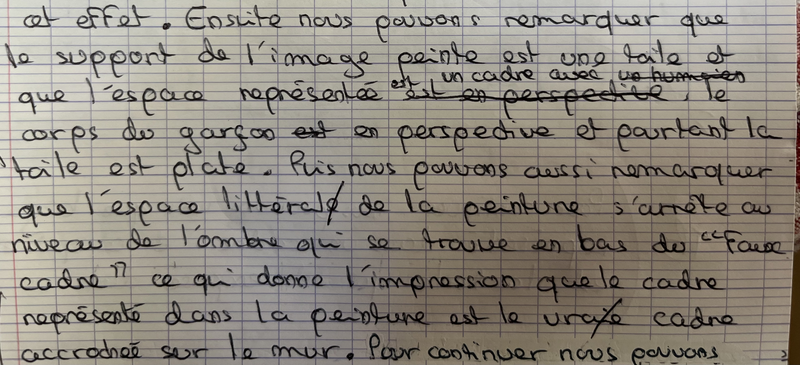 cet effet. Ensuite nous pouvons remarquer que
le support de l'image peinte est une toile et
que l'espace représentée est un cadre avec, le
corps du garçon en perspective et pourtant la
toile est plate. Puis nous pouvons aussi remarquer
que l'espace littéral de la peinture s'arrête au
niveau de l'ombre qui se trouve en bas du "Faux
cadre" ce qui donne l'impression que le cadre
représenté dans la peinture est le vrai cadre
accrochée sur le mur. Pour continuer nous pouvons